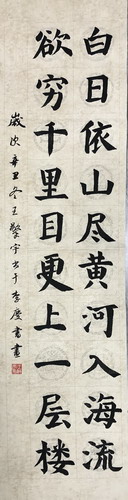 白日依山尽黄河入海流
欲穷千里目更上一层楼
岁次辛丑冬王擎宇书于李度书画